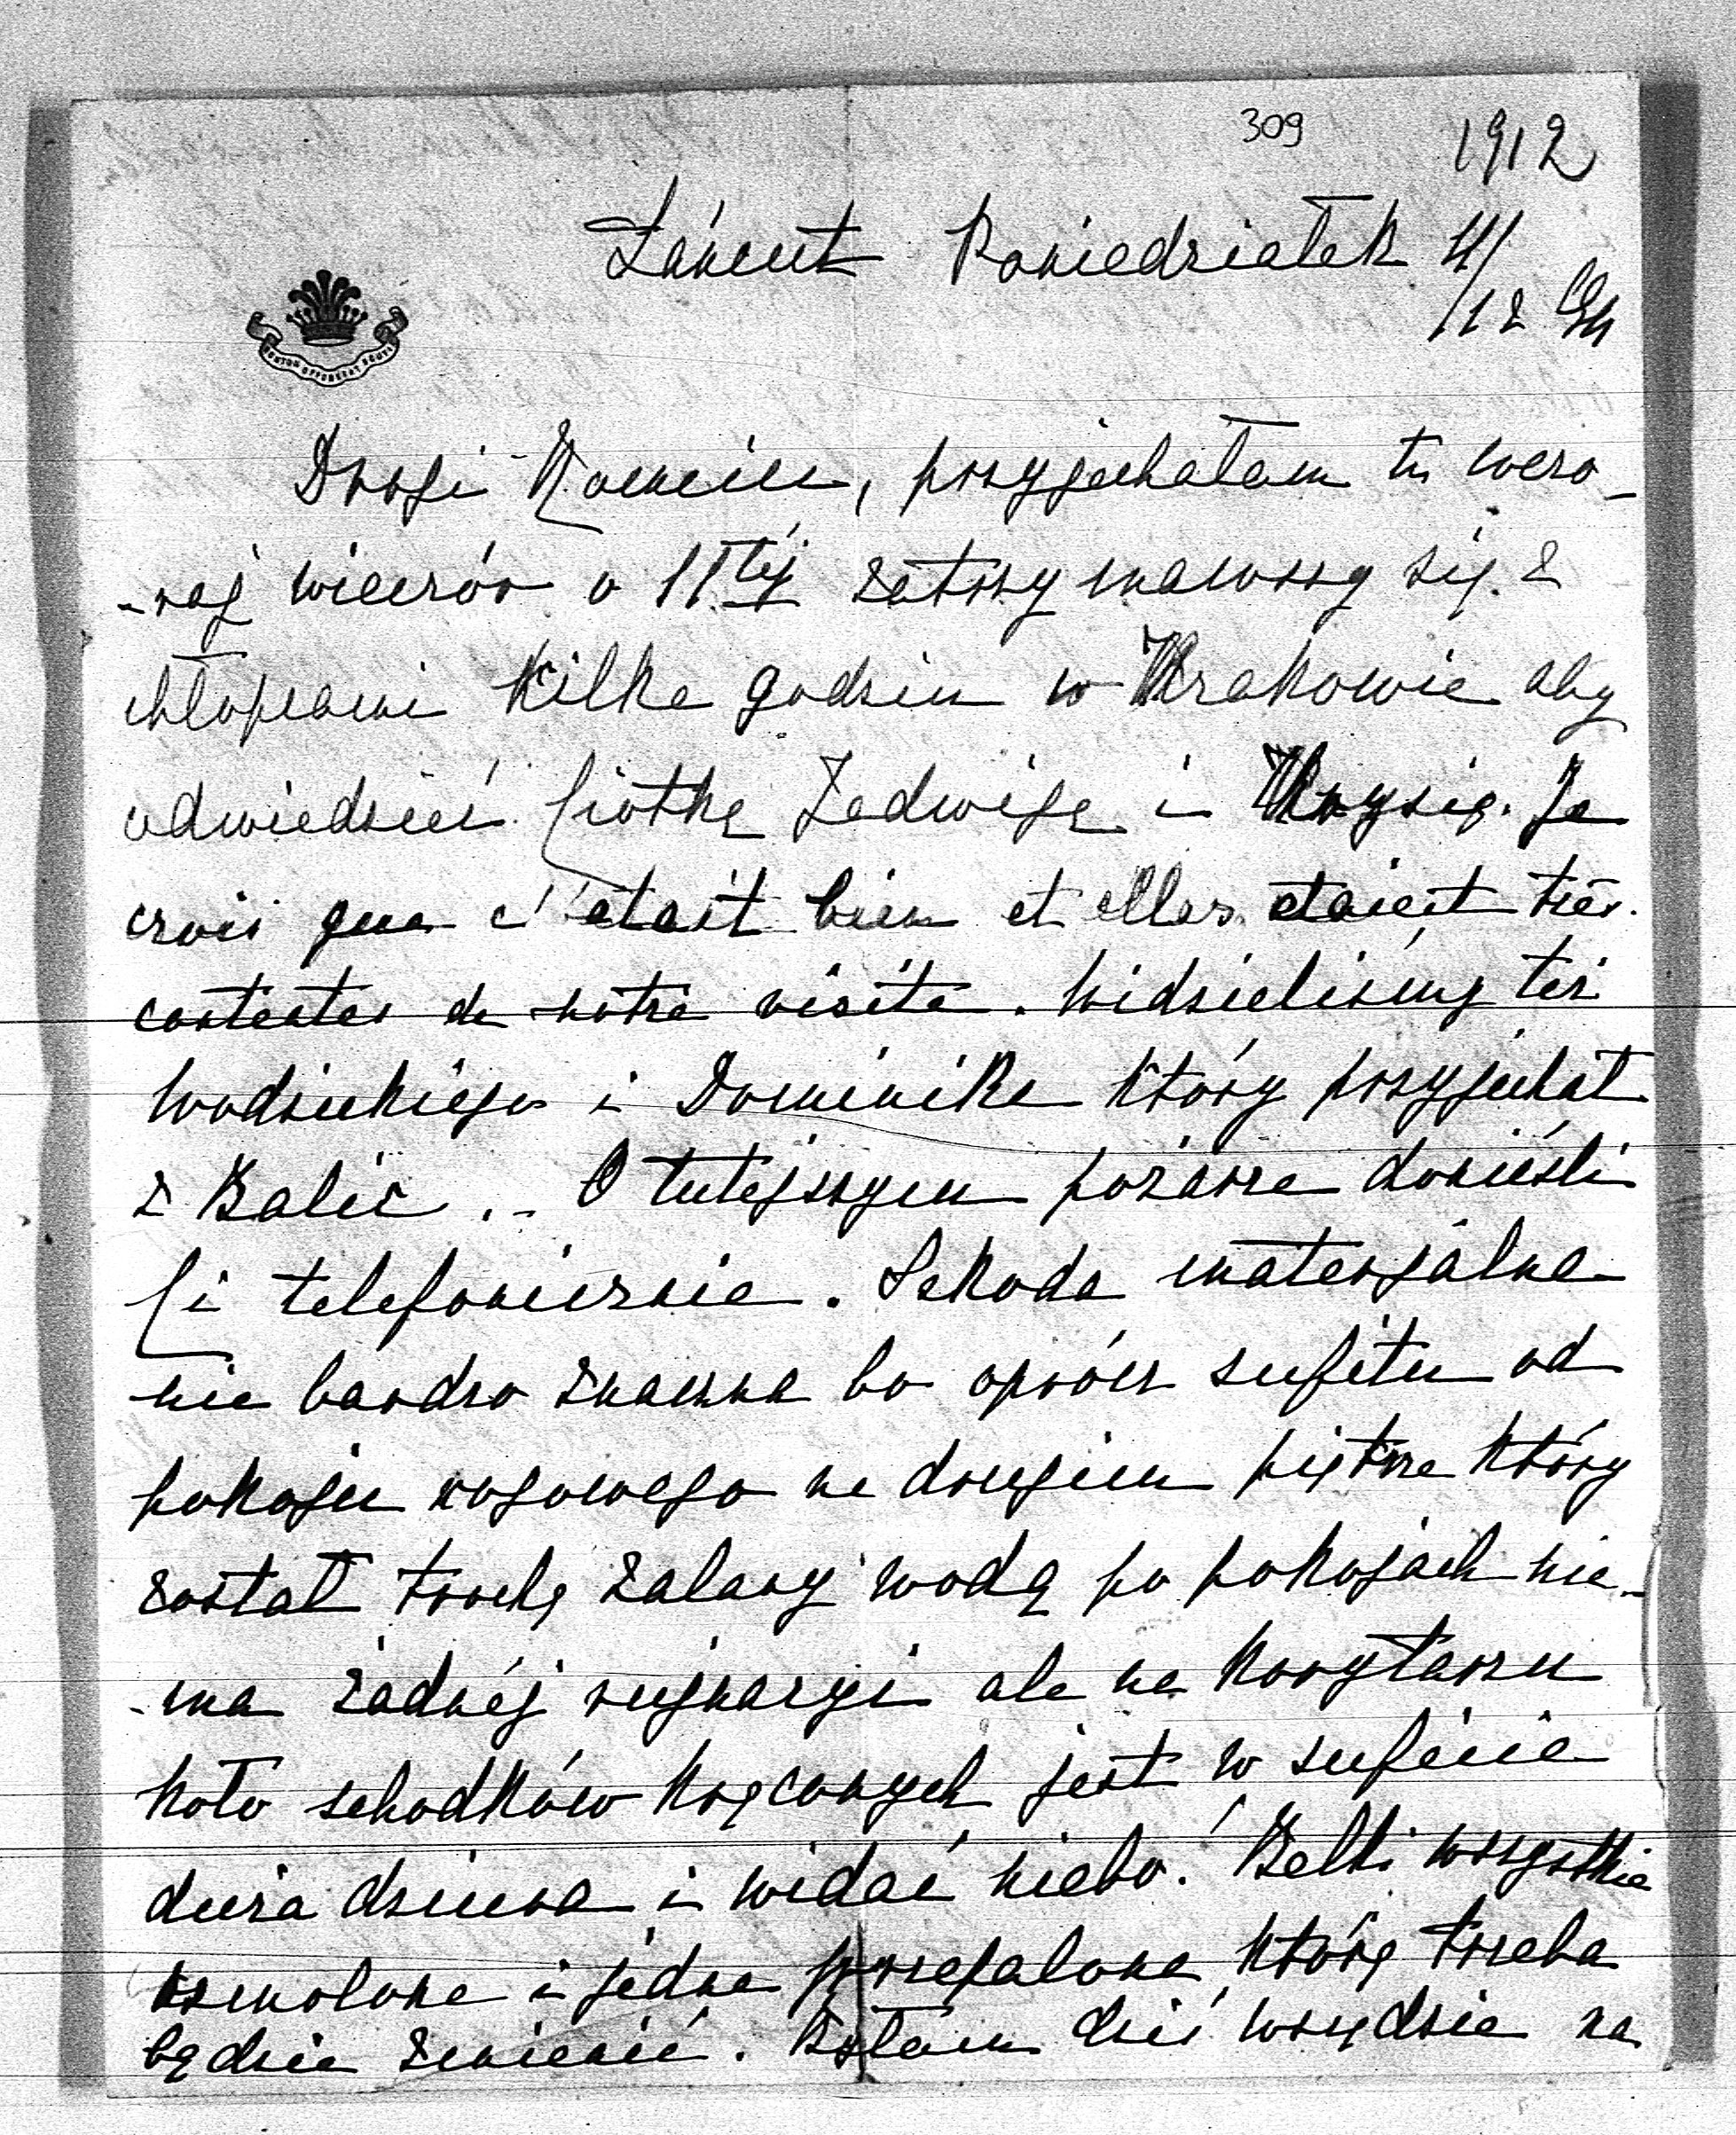 309
1912
Łáncut Poniedziałek 11/
/12 

Drogi Romciu, przyjechałam tu wczo-
-raj wieczór o 11tėj zatrzymawszy się z
chłopcami kilka godzin w Krakowie aby
odwiedzieć Ciotkę Jadwigę i Krysię. Je
crois que c'était bien et elles etaient très
contentes de notre visite. Widzieliśmy też
Wodzickiego i Dominika który przyjechał
z Balic .. O tutejszym pożarze donieśli
Ci telefonicznie. Szkoda materjálna
nie bardzo znaczna bo oprócz sufitu od
pokoju rogowego na drugiem piętrze który
został trochę zalany wodą po pokojach nie-
-ma żadnéj rujnacyi ale na korytarzu
koło schodków kręconych jest w suficie
duża dziura i widać niebo! Belki wszystkie
osmolone i jedna przepalona którą trzeba
będzie zmienić. Byłam dziś wszędzie na